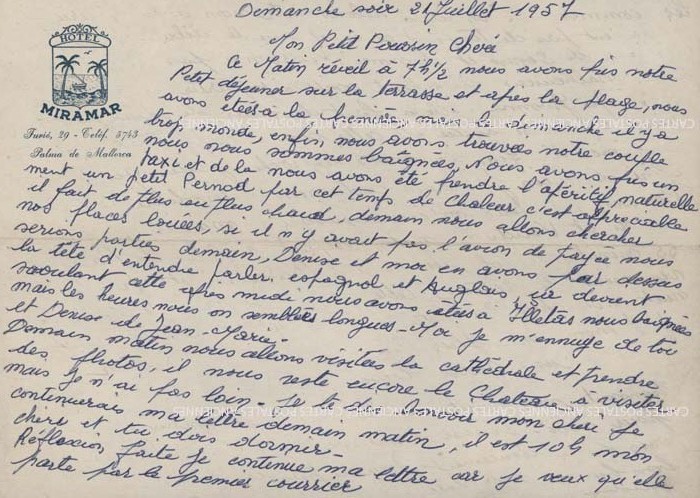 Demanche soir 21 Juillet 1957
HOTEL
MIRAMAR
29 - Teléf. 5743
Palma de Mallorca
Mon Petit Poussin Chéri
Ce Matin réveil à 7h1/2 nous avons pris notre
Petit déjeuner sur la terrasse et après la plage, nous
avons étées à la mais le dimanche il y a
trop monde, enfin, nous avons trouvées notre couple
nous nous sommes baignées, Nous avons pris un
taxi et de la nous avons été prendre l'apéritif, naturelle
ment un petit Pernod par cet temps de Chaleur c'est appréciable
il fait de plus en plus chaud, demain nous allons chercher
nos places louées, si il n'y avait pas l'avion de payée nous
serions parties demain, Denise et moi en avons par dessus
la tête d'entendre parler espagnol et Anglais, ça devient
saoulant cette après midi nous avons étées à Illetas nous baignées
mais les heures nous on semblées longues - Moi je m'ennuge de toi
et Denise de Jean-Marie.
Demain matin nous allons visitées la cathédrale et prendre
des photos, il nous reste encore le Chateau a visiter
mais je n'ai pas loin - Je te dis bonsoir mon cheri Je
continuerais ma lettre demain matin, il est 10h mon
cheri et tu dois dormir -
Réflexion faite je continue ma lettre car je veux qu'elle
parte par le premier courrier
CARTES POSTALES ANCIENNES